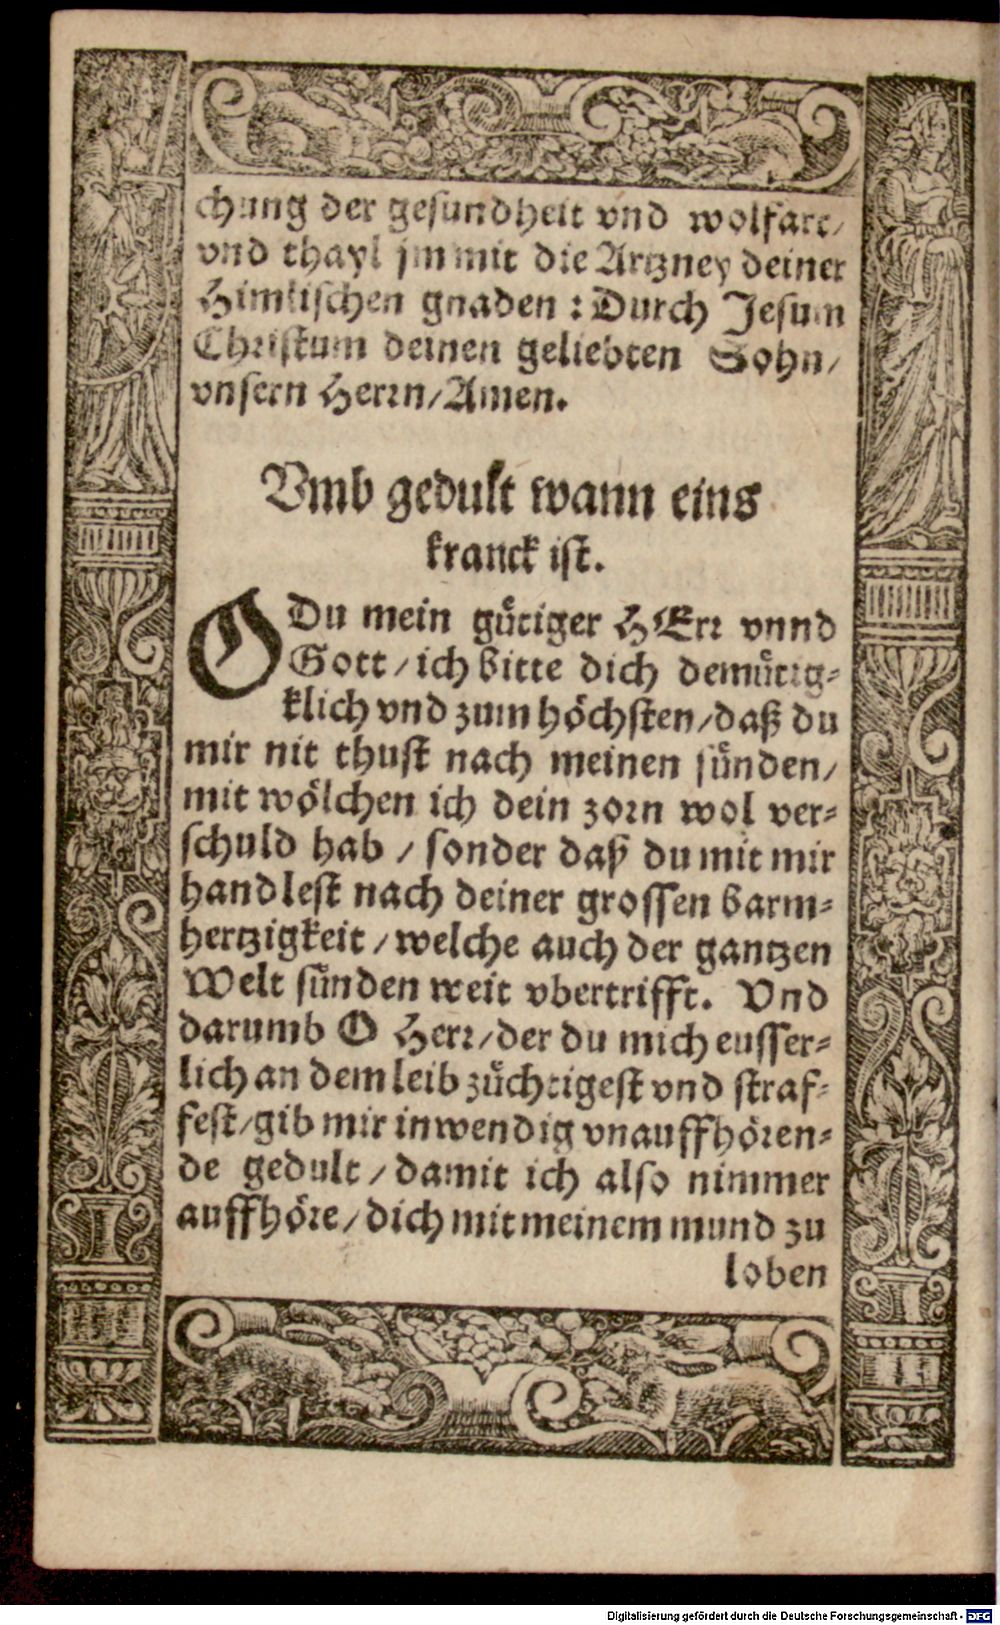 chung der gesundheit vnd wolfart/
vnd thayl jm mit die Artzney deiner
Himlischen gnaden : Durch Jesum
Christum deinen geliebten Sohn/
vnsern Herrn/Amen.
Vmb gedult wann eins
kranck ist.
O Du mein gůtiger HErr vnnd
Gott/ich bitte dich demůtig-
klich vnd zum höchsten/daß du
mir nit thust nach meinen sünden/
mit wölchen ich dein zorn wol ver-
schuld hab / sonder daß du mit mir
handlest nach deiner grossen barm-
hertzigkeit/welche auch der gantzen
Welt sünden weit vbertrifft. Vnd
darumb O Herr/der du mich eusser-
lich an dem leib züchtigest vnd straf-
fest/gib mir inwendig vnauffhören-
de gedult/damit ich also nimmer
auffhöre/dich mit meinem mund zu
loben
Digitalisierung gefördert durch die Deutsche Forschungsgemeinschaft - DFG